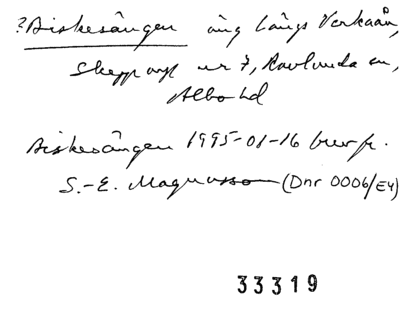 ?Biskesången äng längs Verkaån,
Skepparp nr 7, Ravlunda sn,
Albo hd
Biskesången 1995-01-16 brev fr.
S.-E. Magnusson (Dnr 0006/E4)
33319